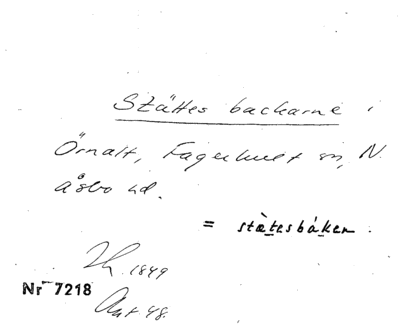 Stättes backarne i
Örnalt, Fagerhult sn, N.
Åsbo hd.
= stætesbåken.
1849
Nr 7218
48.